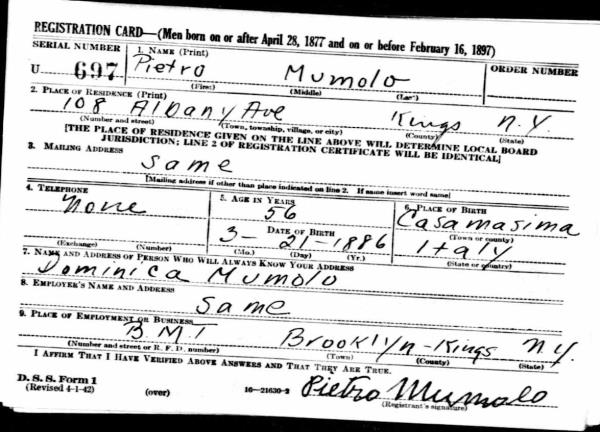 REGISTRATION CARD—(Men born on or after April 28, 1877 and on or before February 16, 1897)
SERIAL NUMBER 1. NAME (Print) ORDER NUMBER
U 697 Pietro Mumolo
(First) (Middle) (Last)
2. PLACE OF RESIDENCE (Print)
108 Albany Ave Kings N.Y.
(Number and street) (Town, township, village, or city) (County) (State)
[THE PLACE OF RESIDENCE GIVEN ON THE LINE ABOVE WILL DETERMINE LOCAL BOARD
JURISDICTION; LINE 2 OF REGISTRATION CERTIFICATE WILL BE IDENTICAL]
3. MAILING ADDRESS
Same
[Mailing address if other than place indicated on line 2. If same insert word same]
4. TELEPHONE 5. AGE IN YEARS 6. PLACE OF BIRTH
None 56 Casamasima
DATE OF BIRTH (Town or county)
3- 21-1886 Italy
(Exchange) (Number) (Mo.) (Day) (Yr.) (State or country)
7. NAME AND ADDRESS OF PERSON WHO WILL ALWAYS KNOW YOUR ADDRESS
Dominica Mumolo
8. EMPLOYER'S NAME AND ADDRESS
Same
9. PLACE OF EMPLOYMENT OR BUSINESS
B.M.T Brooklyn-Kings N.Y.
(Number and street or R. F. D. number) (Town) (County) (State)
I AFFIRM THAT I HAVE VERIFIED ABOVE ANSWERS AND THAT THEY ARE TRUE.
D. S. S. Form 1
(Revised 4-1-42) (over) 16—21630-2 Pietro Mumolo
(Registrant's signature)